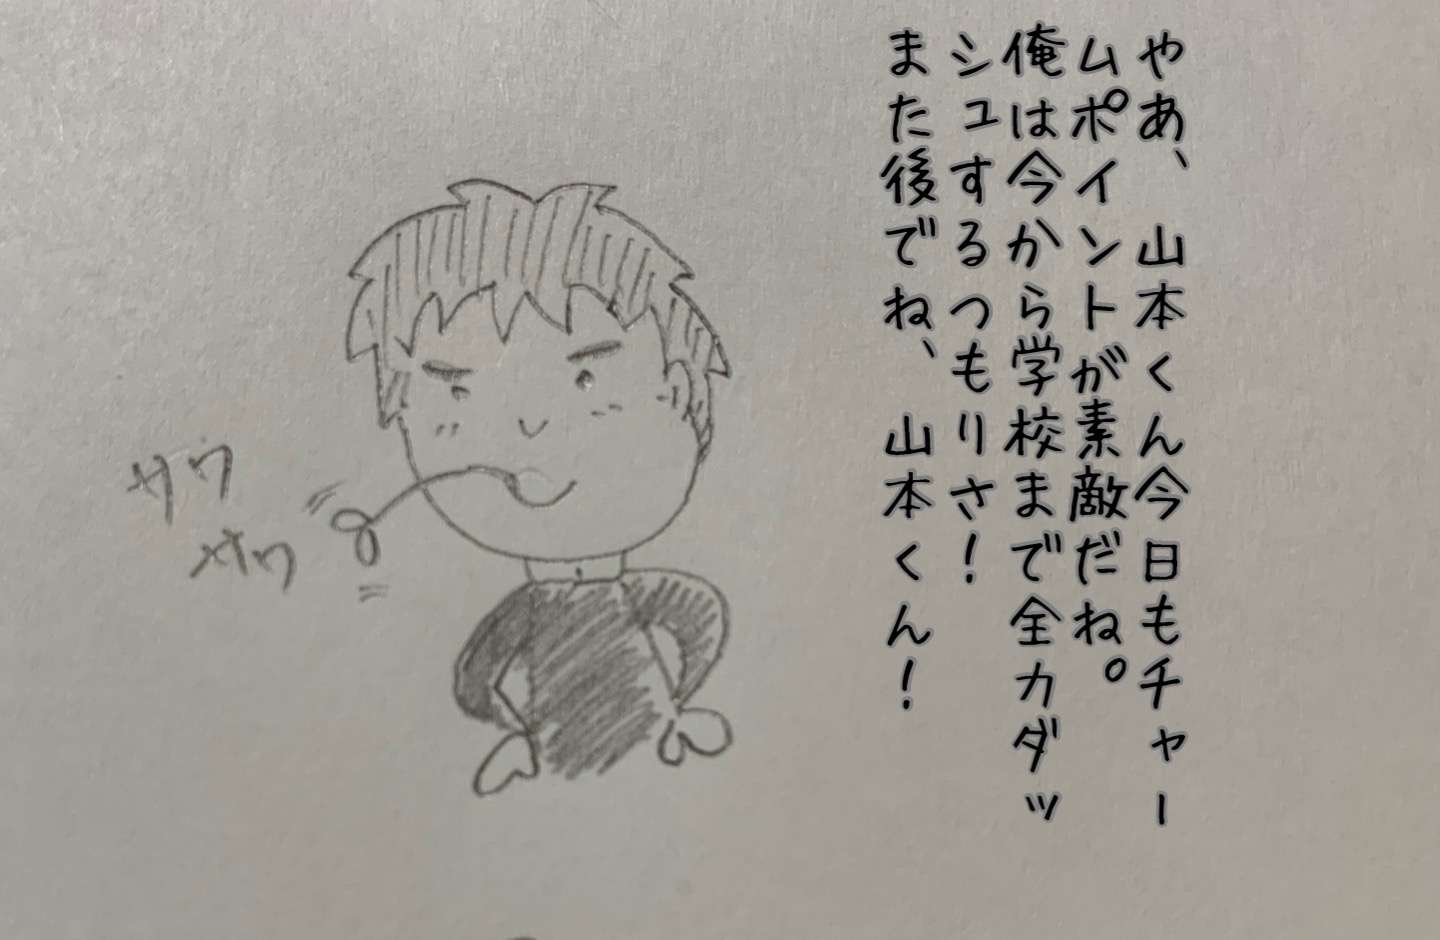 やあ、山本くん今日もチャー
ムポイントが素敵だね。
俺は今から学校まで全力ダッ
シュするつもりさ!
また後でね、山本くん!
サワ
サワ